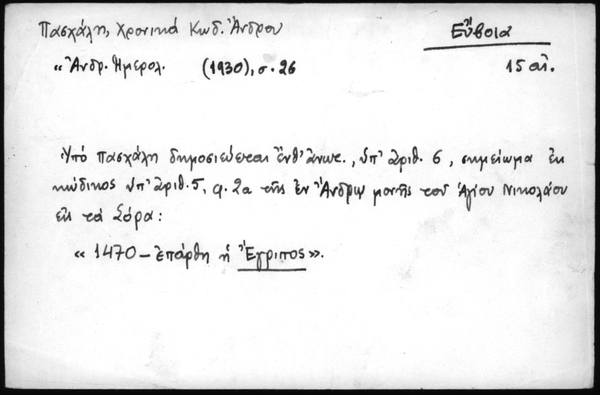 Πασχάλη, Χρονικά Κωδ. Ἄνδρου
Εὔβοια
«Ἀνδρ. Ἡμερολ. (1930), σ. 26
15 αἰ.
Ὑπό Πασχάλη δημοσιεύεται ἔνθ' ἄνωτ., ὑπ' ἀριθ. 6, σημείωμα ἐκ
κώδικος ὑπ' ἀριθ. 5, φ. 2α τῆς ἐν Ἄνδρῳ μονῆς τοῦ Ἁγίου Νικολάου
εἰς τά Σόρα:
«1470 – ἐπάρθη ἡ Ἔγριπος».